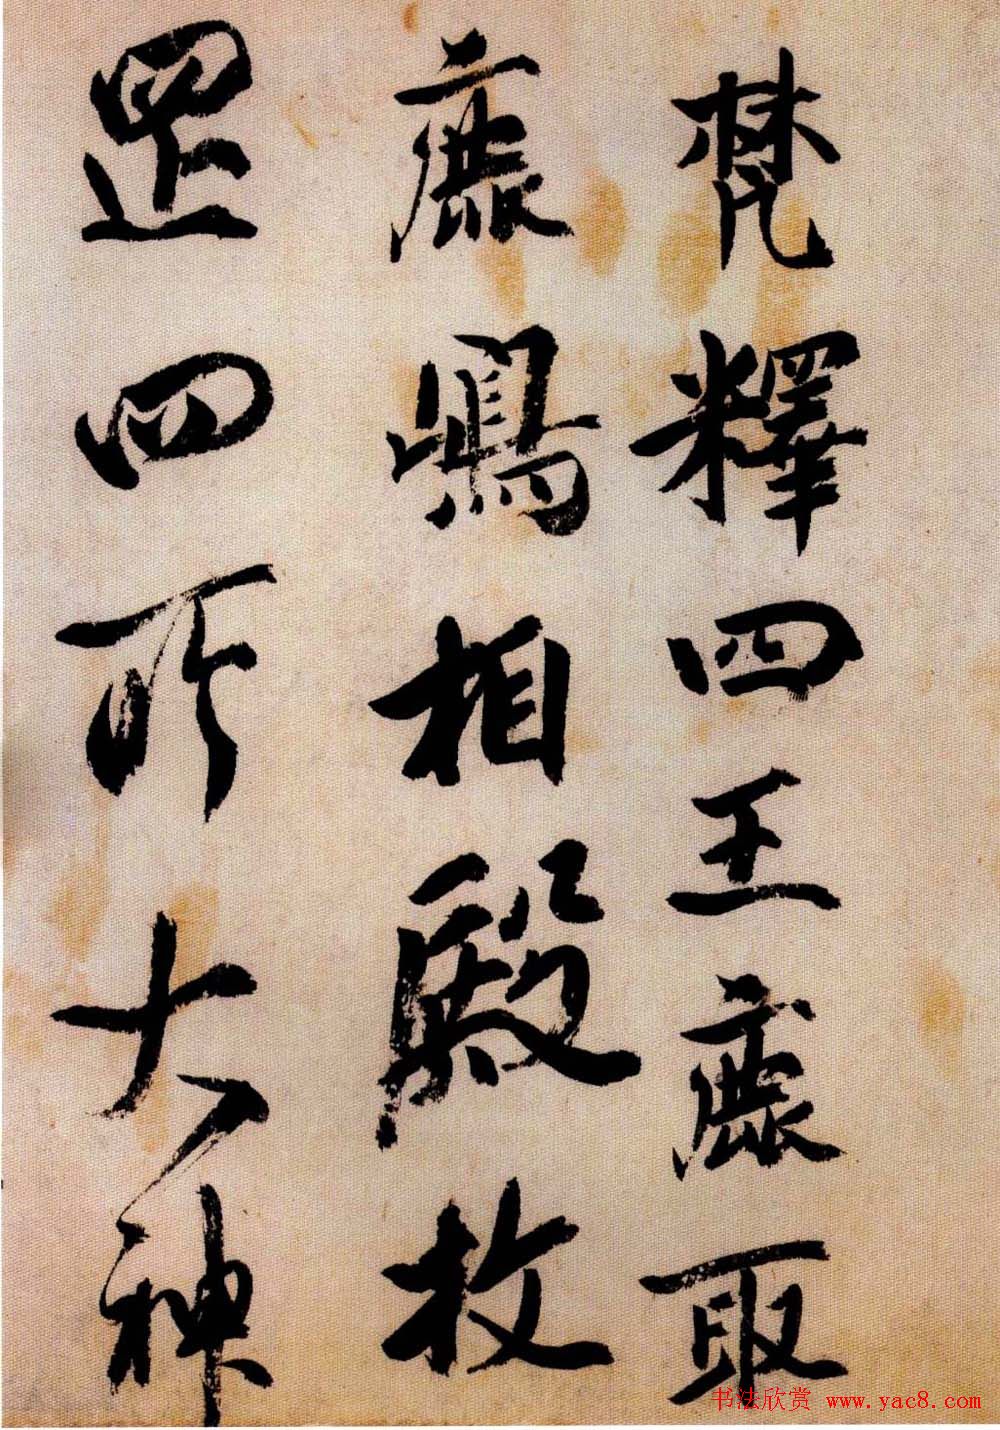 梵釋四王鹿取
鹿嶋相殿枚
罡四所大神
书法欣赏 www.yac8.com